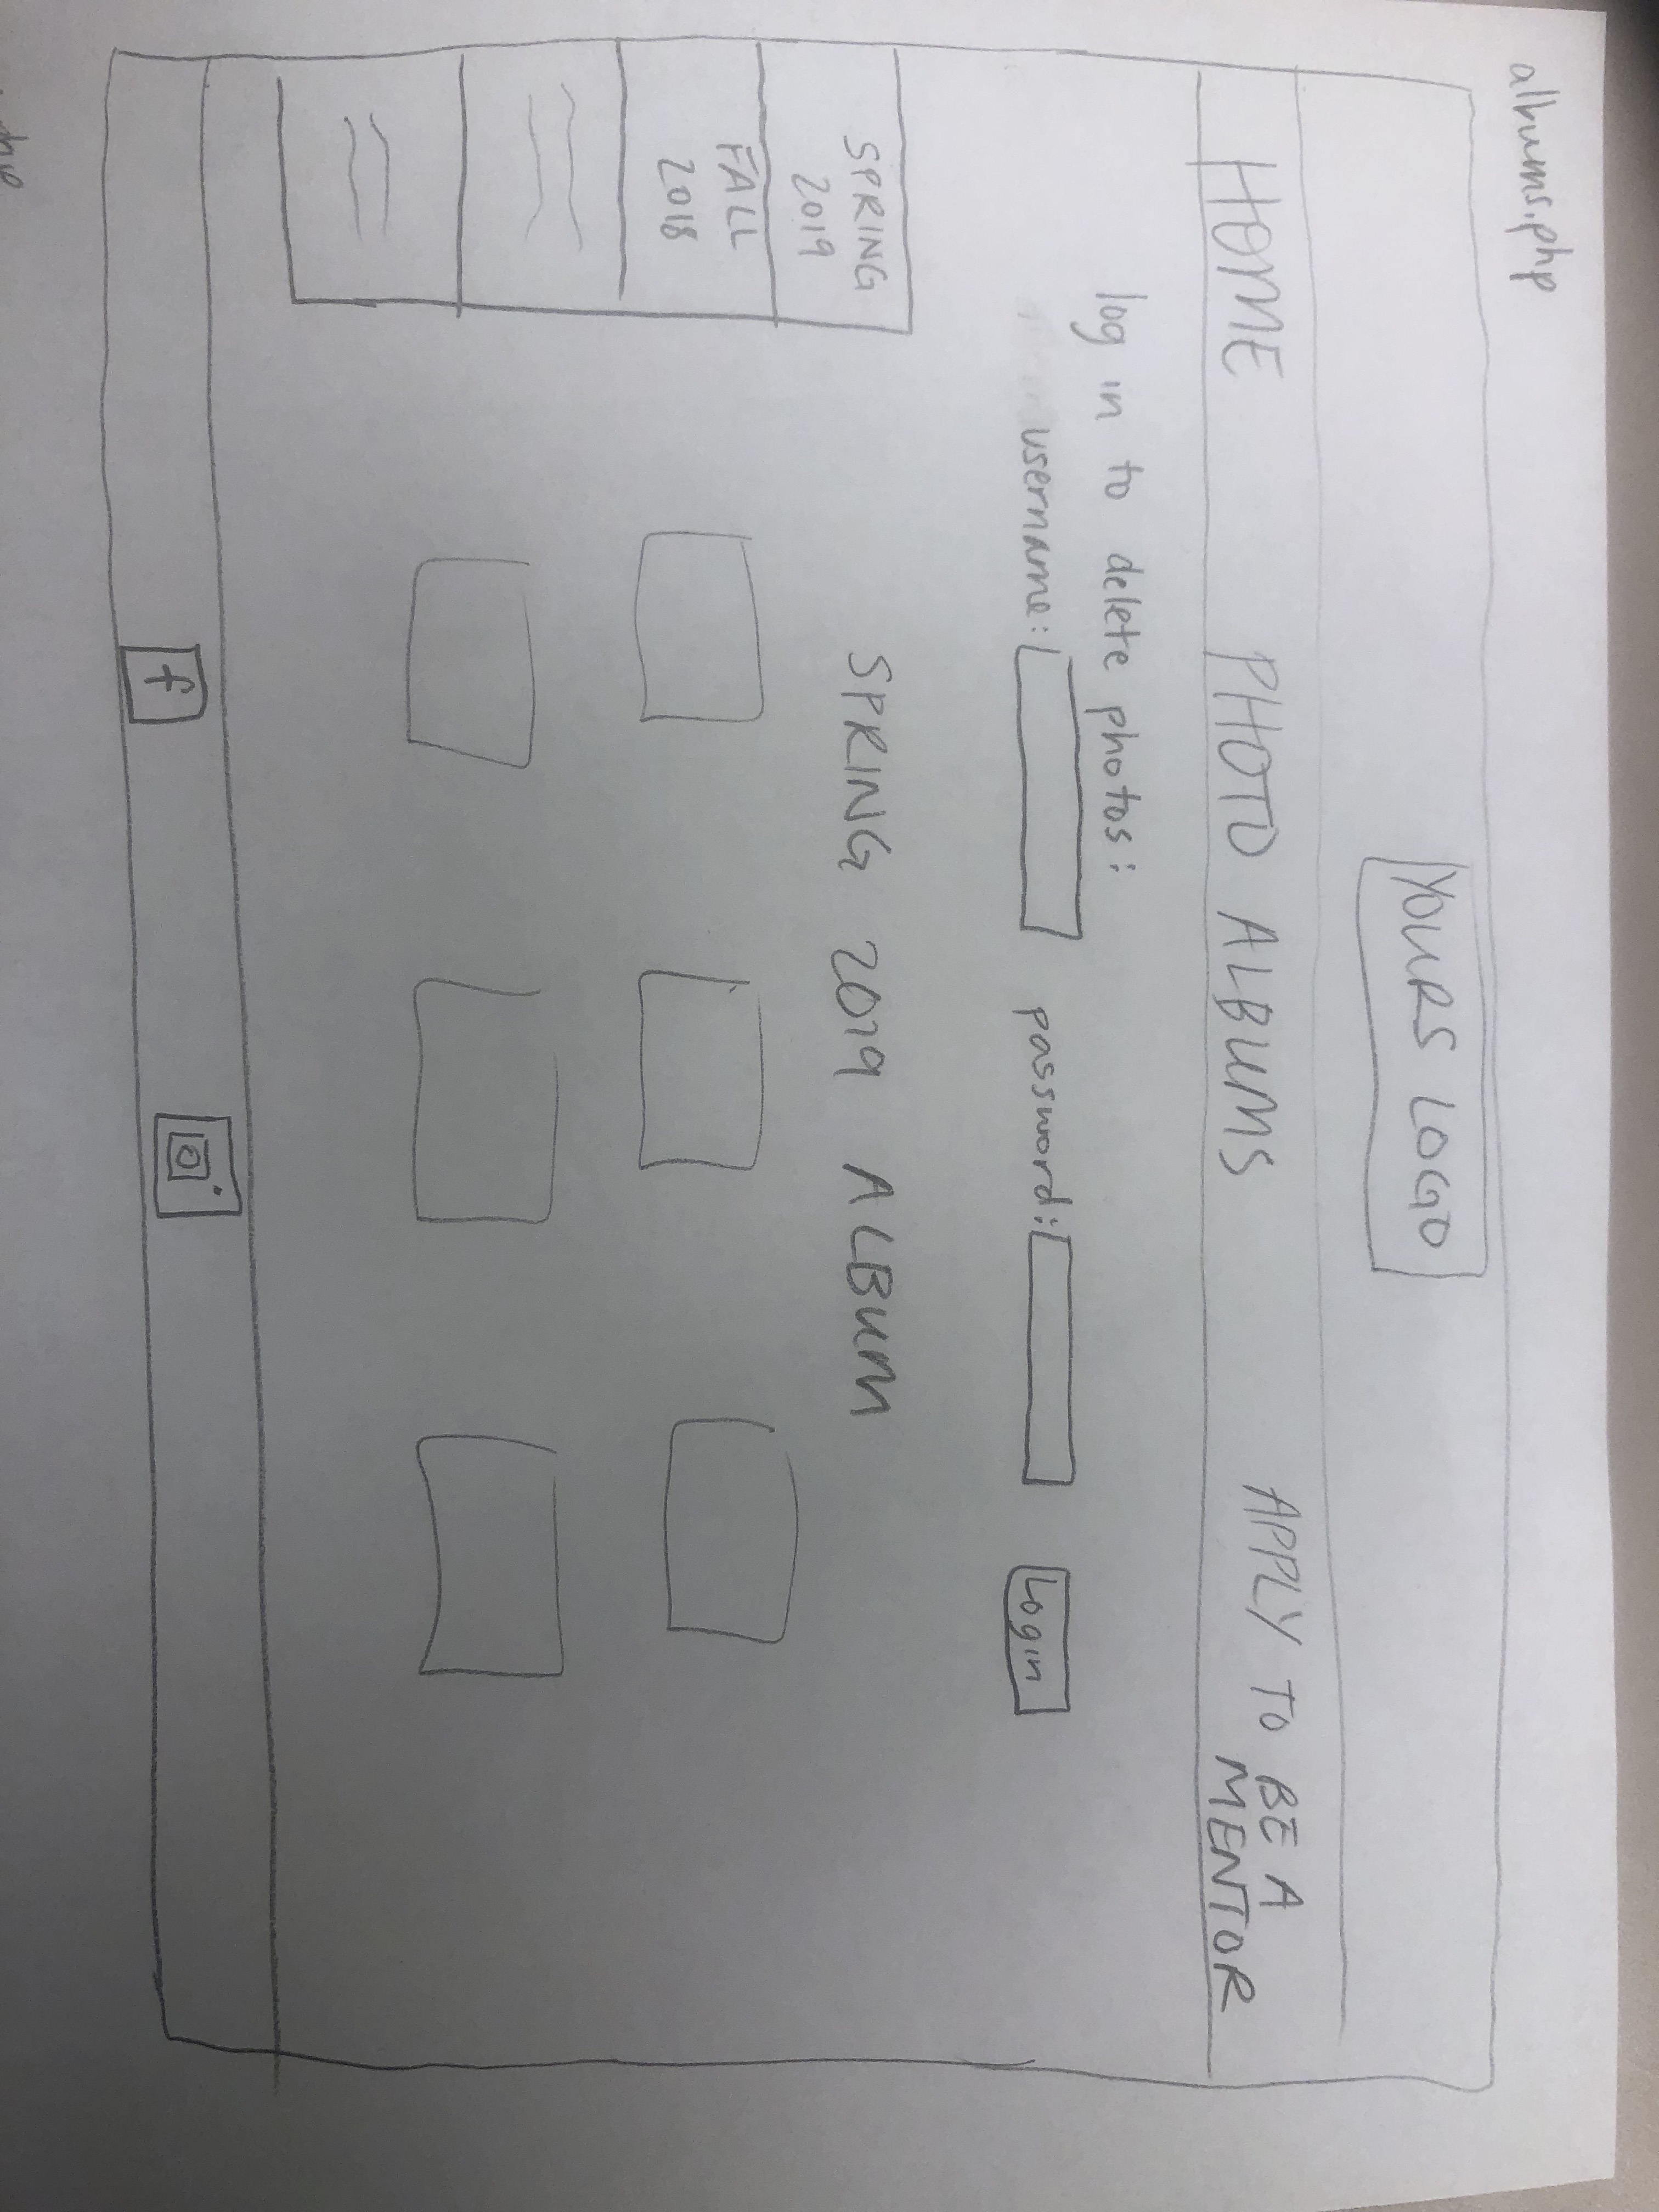 albums.php
YOURS LOGO
HOME PHOTO ALBUMS APPLY TO BE A
MENTOR
log in to delete photos:
username: password: Login
SPRING
2019
FALL
2018
SPRING 2019 ALBUM
f